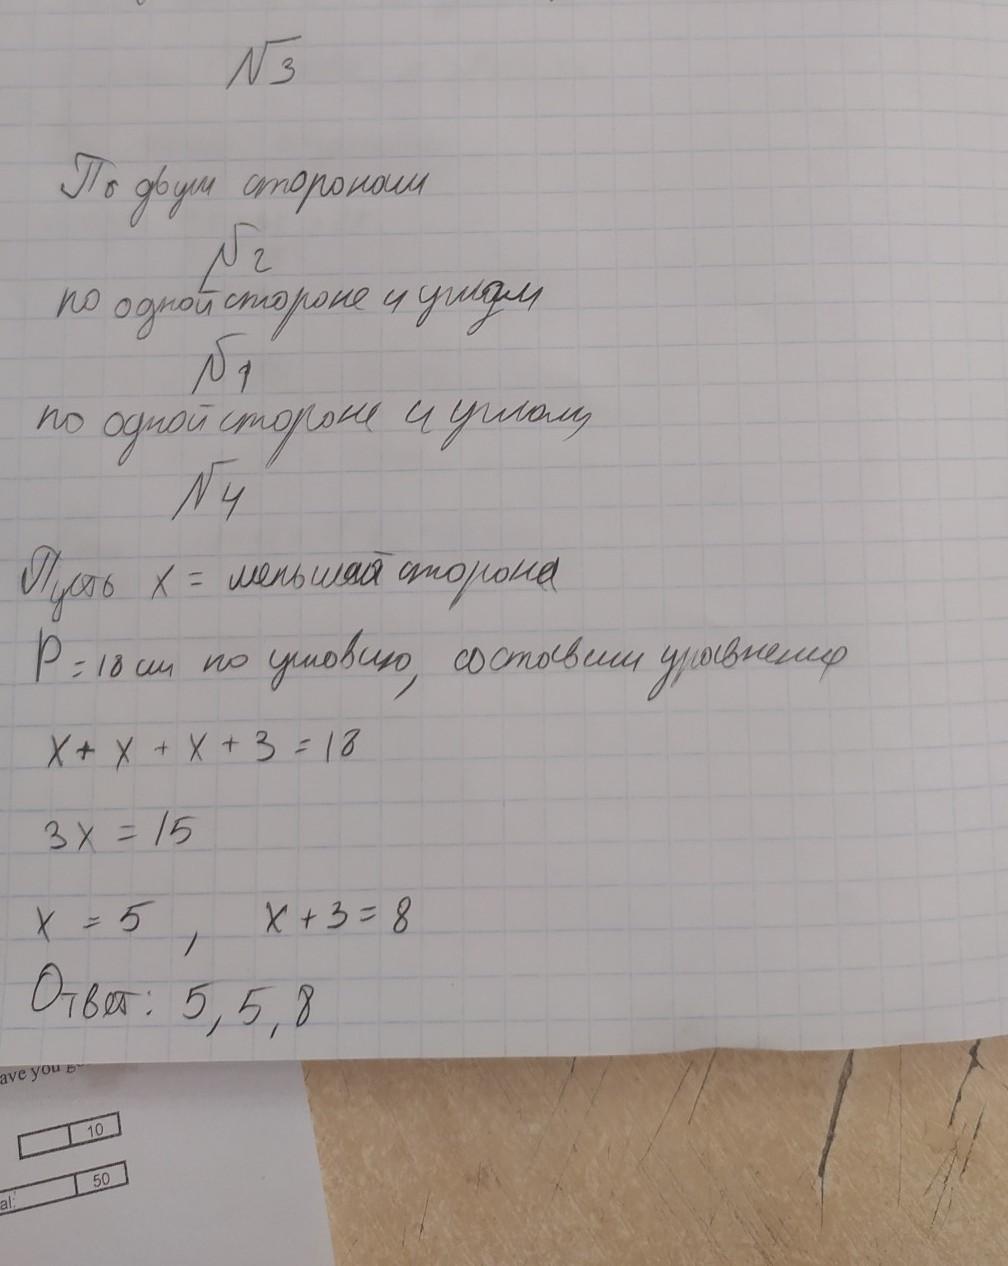 №3
По двум сторонам
№2
по одной стороне и углам
№1
по одной стороне и углам
№4
Пусть x = меньшая сторона
P = 18 см по условию, составим уравнение
x + x + x + 3 = 18
3x = 15
x = 5 , x + 3 = 8
Ответ: 5, 5, 8
ave you
10
al:
50